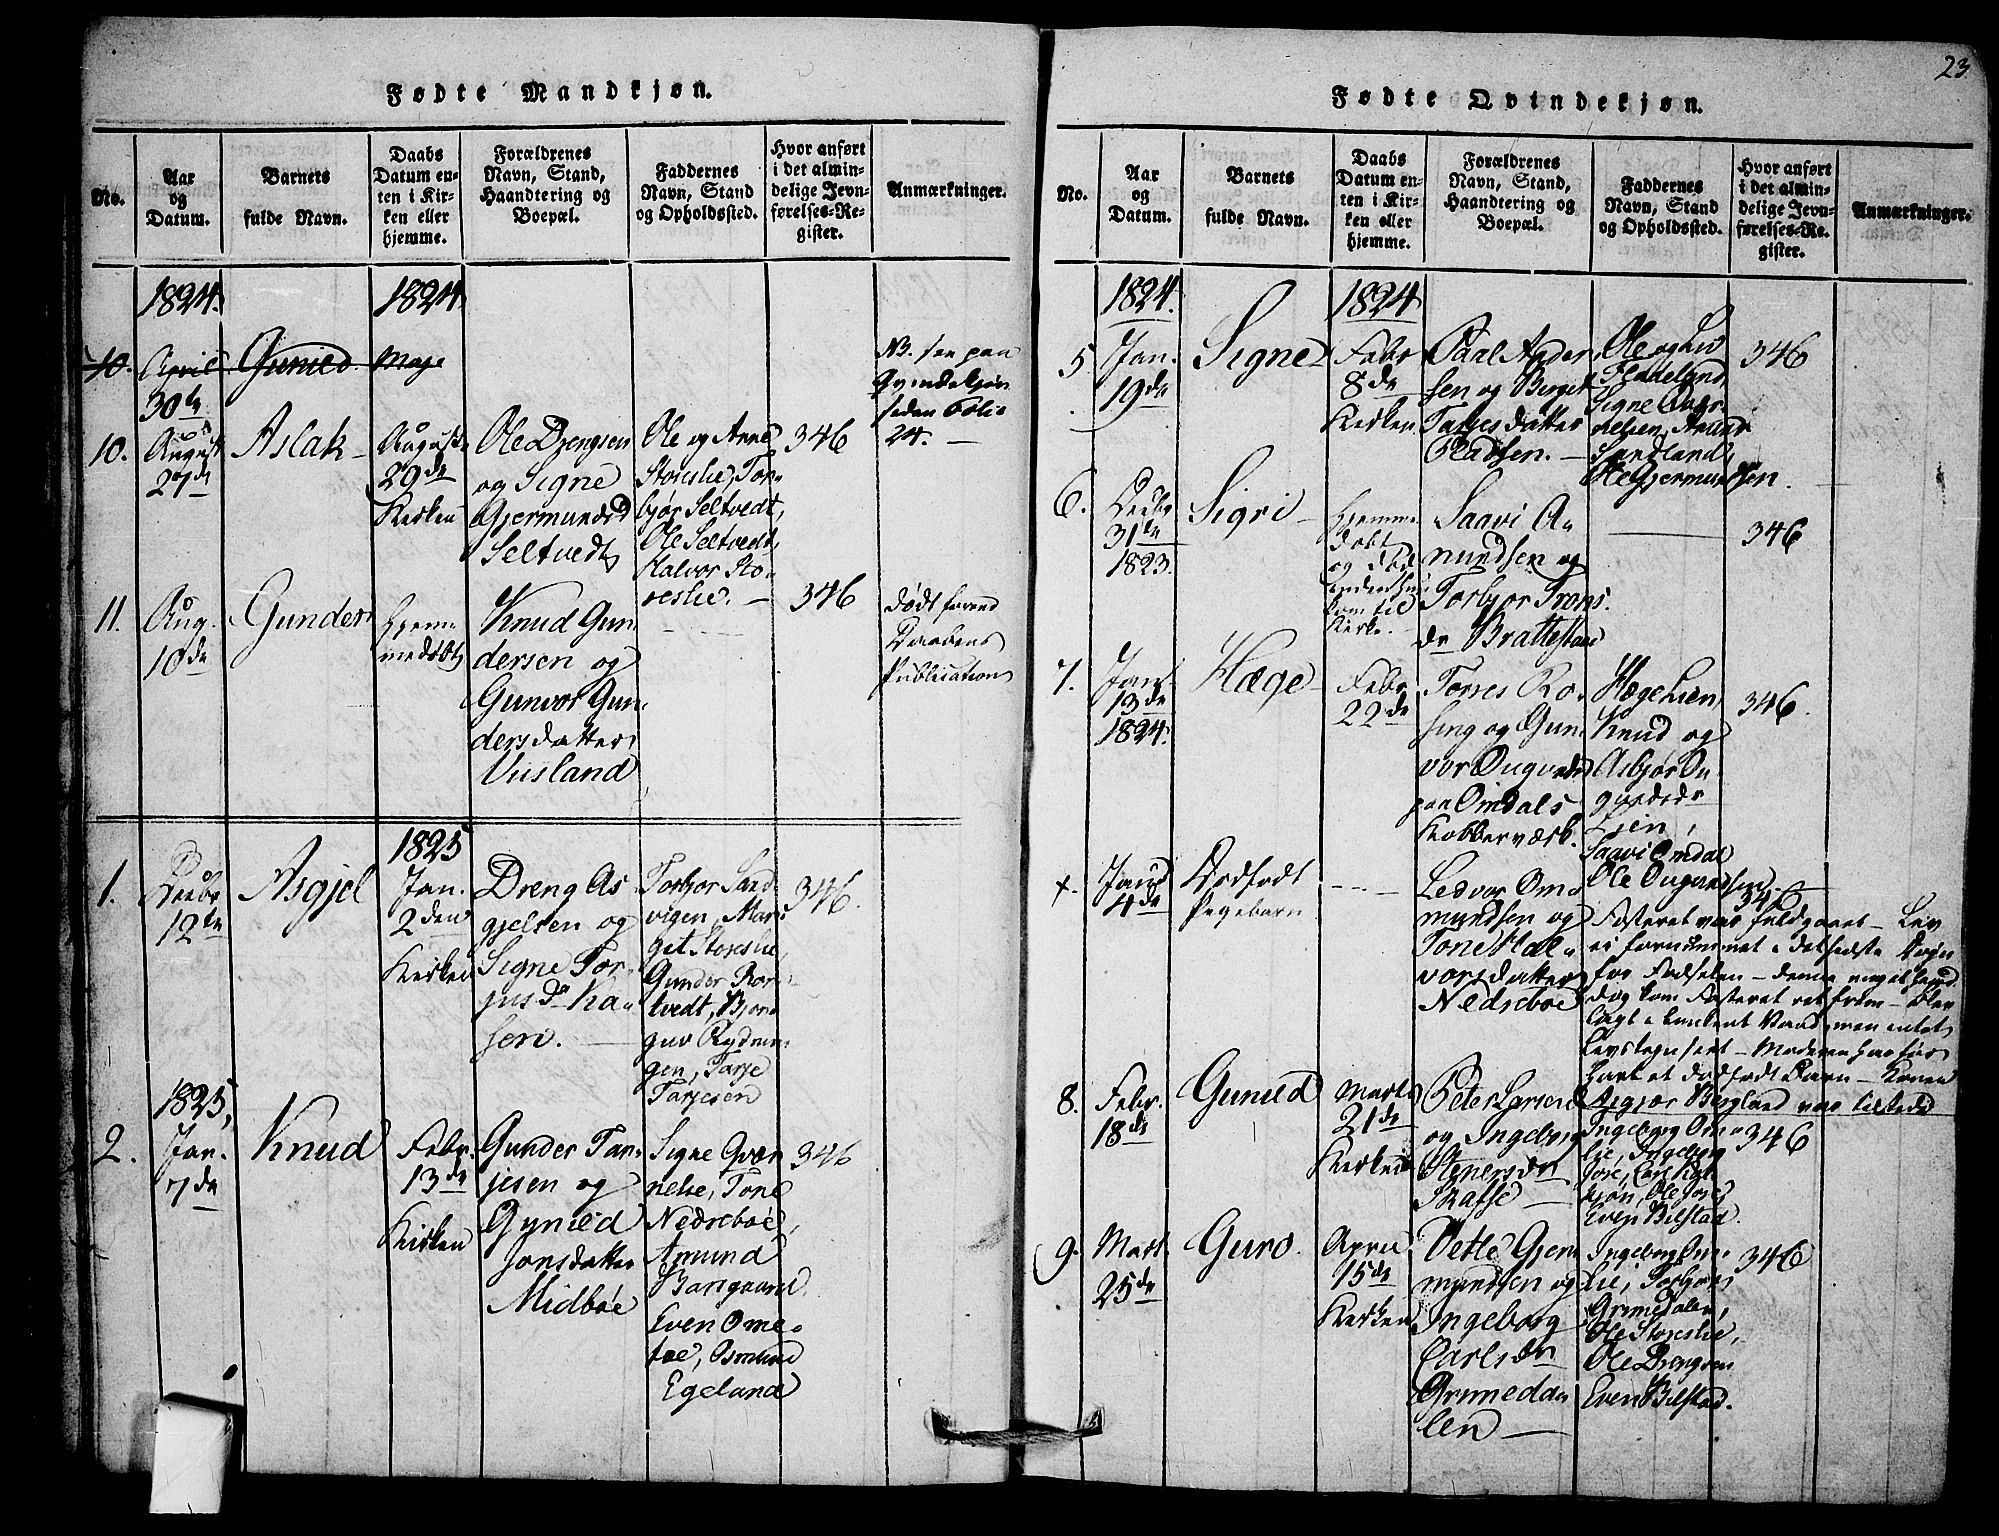 23
Fødte Mandkjøn.
No.
Aar
og
Datum.
Barnets
fulde Navn.
Daabs
Datum en-
ten i Kir-
ken eller
hjemme.
Forældrenes
Navn, Stand,
Haandtering og
Boepæl.
Faddernes
Navn, Stand
og Opholdssted.
Hvor anført
i det almin-
delige Jevn-
førelses-Re-
gister.
Anmærkninger.
1824.
1824
10.
April
30te
Gunild
Maje
NB. see paa
Qvindekjøn
siden Folio
24. —
10.
August
27de
Aslak
August
29de
Kirken
Ole Drengsen
og Signe
Gjermundsd
Seltvedt
Ole og Anne
Storeslie, Tor-
bjør Seltvedt,
Ole Seltvedt,
Halvor Sto-
reslie. —
346
11.
Aug.
10de
Gunder
Hjem-
medøbt
Knud Gun
dersen og
Gunvor Gun
dersdatter
Vusland
346
Født forend
Daabens
Publication
1.
Decbr
12te
Asgjel
1825
Jan.
2den
Kirken
Dreng As
gjelsen og
Signe Tor-
jusdr Ka-
sen. —
Torbjor Sand
vigen, Mar-
git Storeslie
Gunder Ror-
tvedt, Bjorn
guv Rydnin-
gen, Tarje
Tarjesen
346.
1825,
2.
Jan.
7de
Knud
Febr.
13de
Kirken
Gunder Tar-
jesen og
Gunild
Jonsdatter
Midbøe
Signe Qvær-
nelie, Tone
Nedrebøe,
Amund
Barsgaard
Even Ome-
foe, Osmund
Egeland
346
Fødte Qvindekjøn.
No.
Aar
og
Datum.
Barnets
fulde Navn.
Daabs
Datum en-
ten i Kir-
ken eller
hjemme.
Forældrenes
Navn, Stand,
Haandtering og
Boepæl.
Faddernes
Navn, Stand
og Opholdssted.
Hvor anført
i det almin-
delige Jevn-
førelses-Re-
gister.
Anmærkninger.
1824.
1824
5.
Jan.
19de
Signe
Febr
8de
Kirken
Paal Ander
sen og Berget
Tarjesdatter
Pladsen. —
Ole og Liv
Fladeland,
Signe Qvær-
nelien,
Sandland,
Ole Gjermundsen.
346
6.
Decbr
31te
1823.
Sigri
Hjemme
døbt
og død
kom til
Kirke.
Saavi A-
mundsen og
Torbjor Trons
dr Brattestaae
346
7.
Jan
13de
1824.
Hæge
Febr
22de
Torres Ro-
sing og Gun
vor
paa Omdals
Kobberværk.
Hæge Lien
Knud og
Asbjor On-
Lien,
Saavi Omdal
346.
+.
Janu
4de
Dødfødt
Pigebarn
Ledvor Om-
mundsen og
Tone Hal-
vorsdatter
Nedrebøe
Ole
346
Fosteret var fuldgaaet — Liv
ei fornummet i det sidste Døgn
for Fødselen — denne
dog kom Fosteret ret frem —
lagt i lunkent Vand, men intet
Livstegn seet — Moderen har før
havt et dødfødt Barn — Konen
Asgjær Bergland var tilstede
8.
Febr.
18de
Gunild
Marts
21de
Kirken
Peter Larsen
og Ingeborg
Stenersdr
Skafse —
Ingeborg Om-
lie, Ingeborg
Jore, Carl
Ole Jore,
Even Bilstad.
346
9.
Mart.
25de
Guro.
April
15de
Kirken
Vetle Gjer-
mundsen og
Ingeborg
Carlsdr
Grimedda-
len —
Ingeborg Om-
lie, Torbjør
Grimedalen,
Ole Storeslie,
Ole Drengsen
Even Bilstad.
346